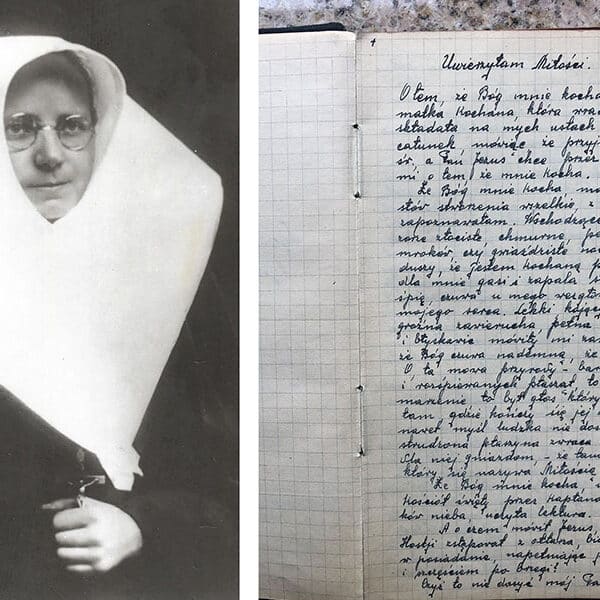 1
Uwierzyłam Miłości.
O tem, że Bóg mnie kocha
matka kochana, która wrac
składała na mych ustach
całunek, mówiąc, że przyj
św, a Pan Jezus chce przez
mi o tem że mnie kocha.
Że Bóg mnie kocha mó
stworzenia wszelkie, z
zapoznawałam. Wschodzące
zorze złociste, chmurne, po
mroków czy gwiaździste no
duszy, że jestem kochaną p
dla mnie gasi i zapala s
śpię czuwa u mego wezgło
mojego serca. Lekki kojący
groźna zawierucha, pełna
i błyskawic mówiły mi za
że Bóg czuwa nademną, że
O ta mowa przyrody – bar
i rozśpiewanych ptasząt, to
marzenie to był głos który
tam gdzie kończy się jej
nawet myśl ludzka nie dos
strudzona ptaszyna zwraca
dla niej gniazdom – że tam
który się nazywa Miłością
Że Bóg mnie kocha, u
Kościół święty przez kapłana
ków nieba, uczyła lektura.
A o czem mówił Jezus,
Hostji zstępował z ołtarza, bia
w posiadanie, napełniając
i szczęściem po brzegi!
Czyż to nie dosyć mój Pa